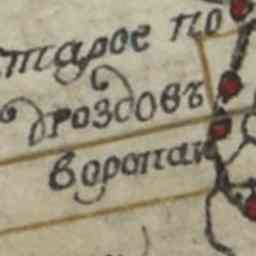 тарое по
дроздовъ
воропаи